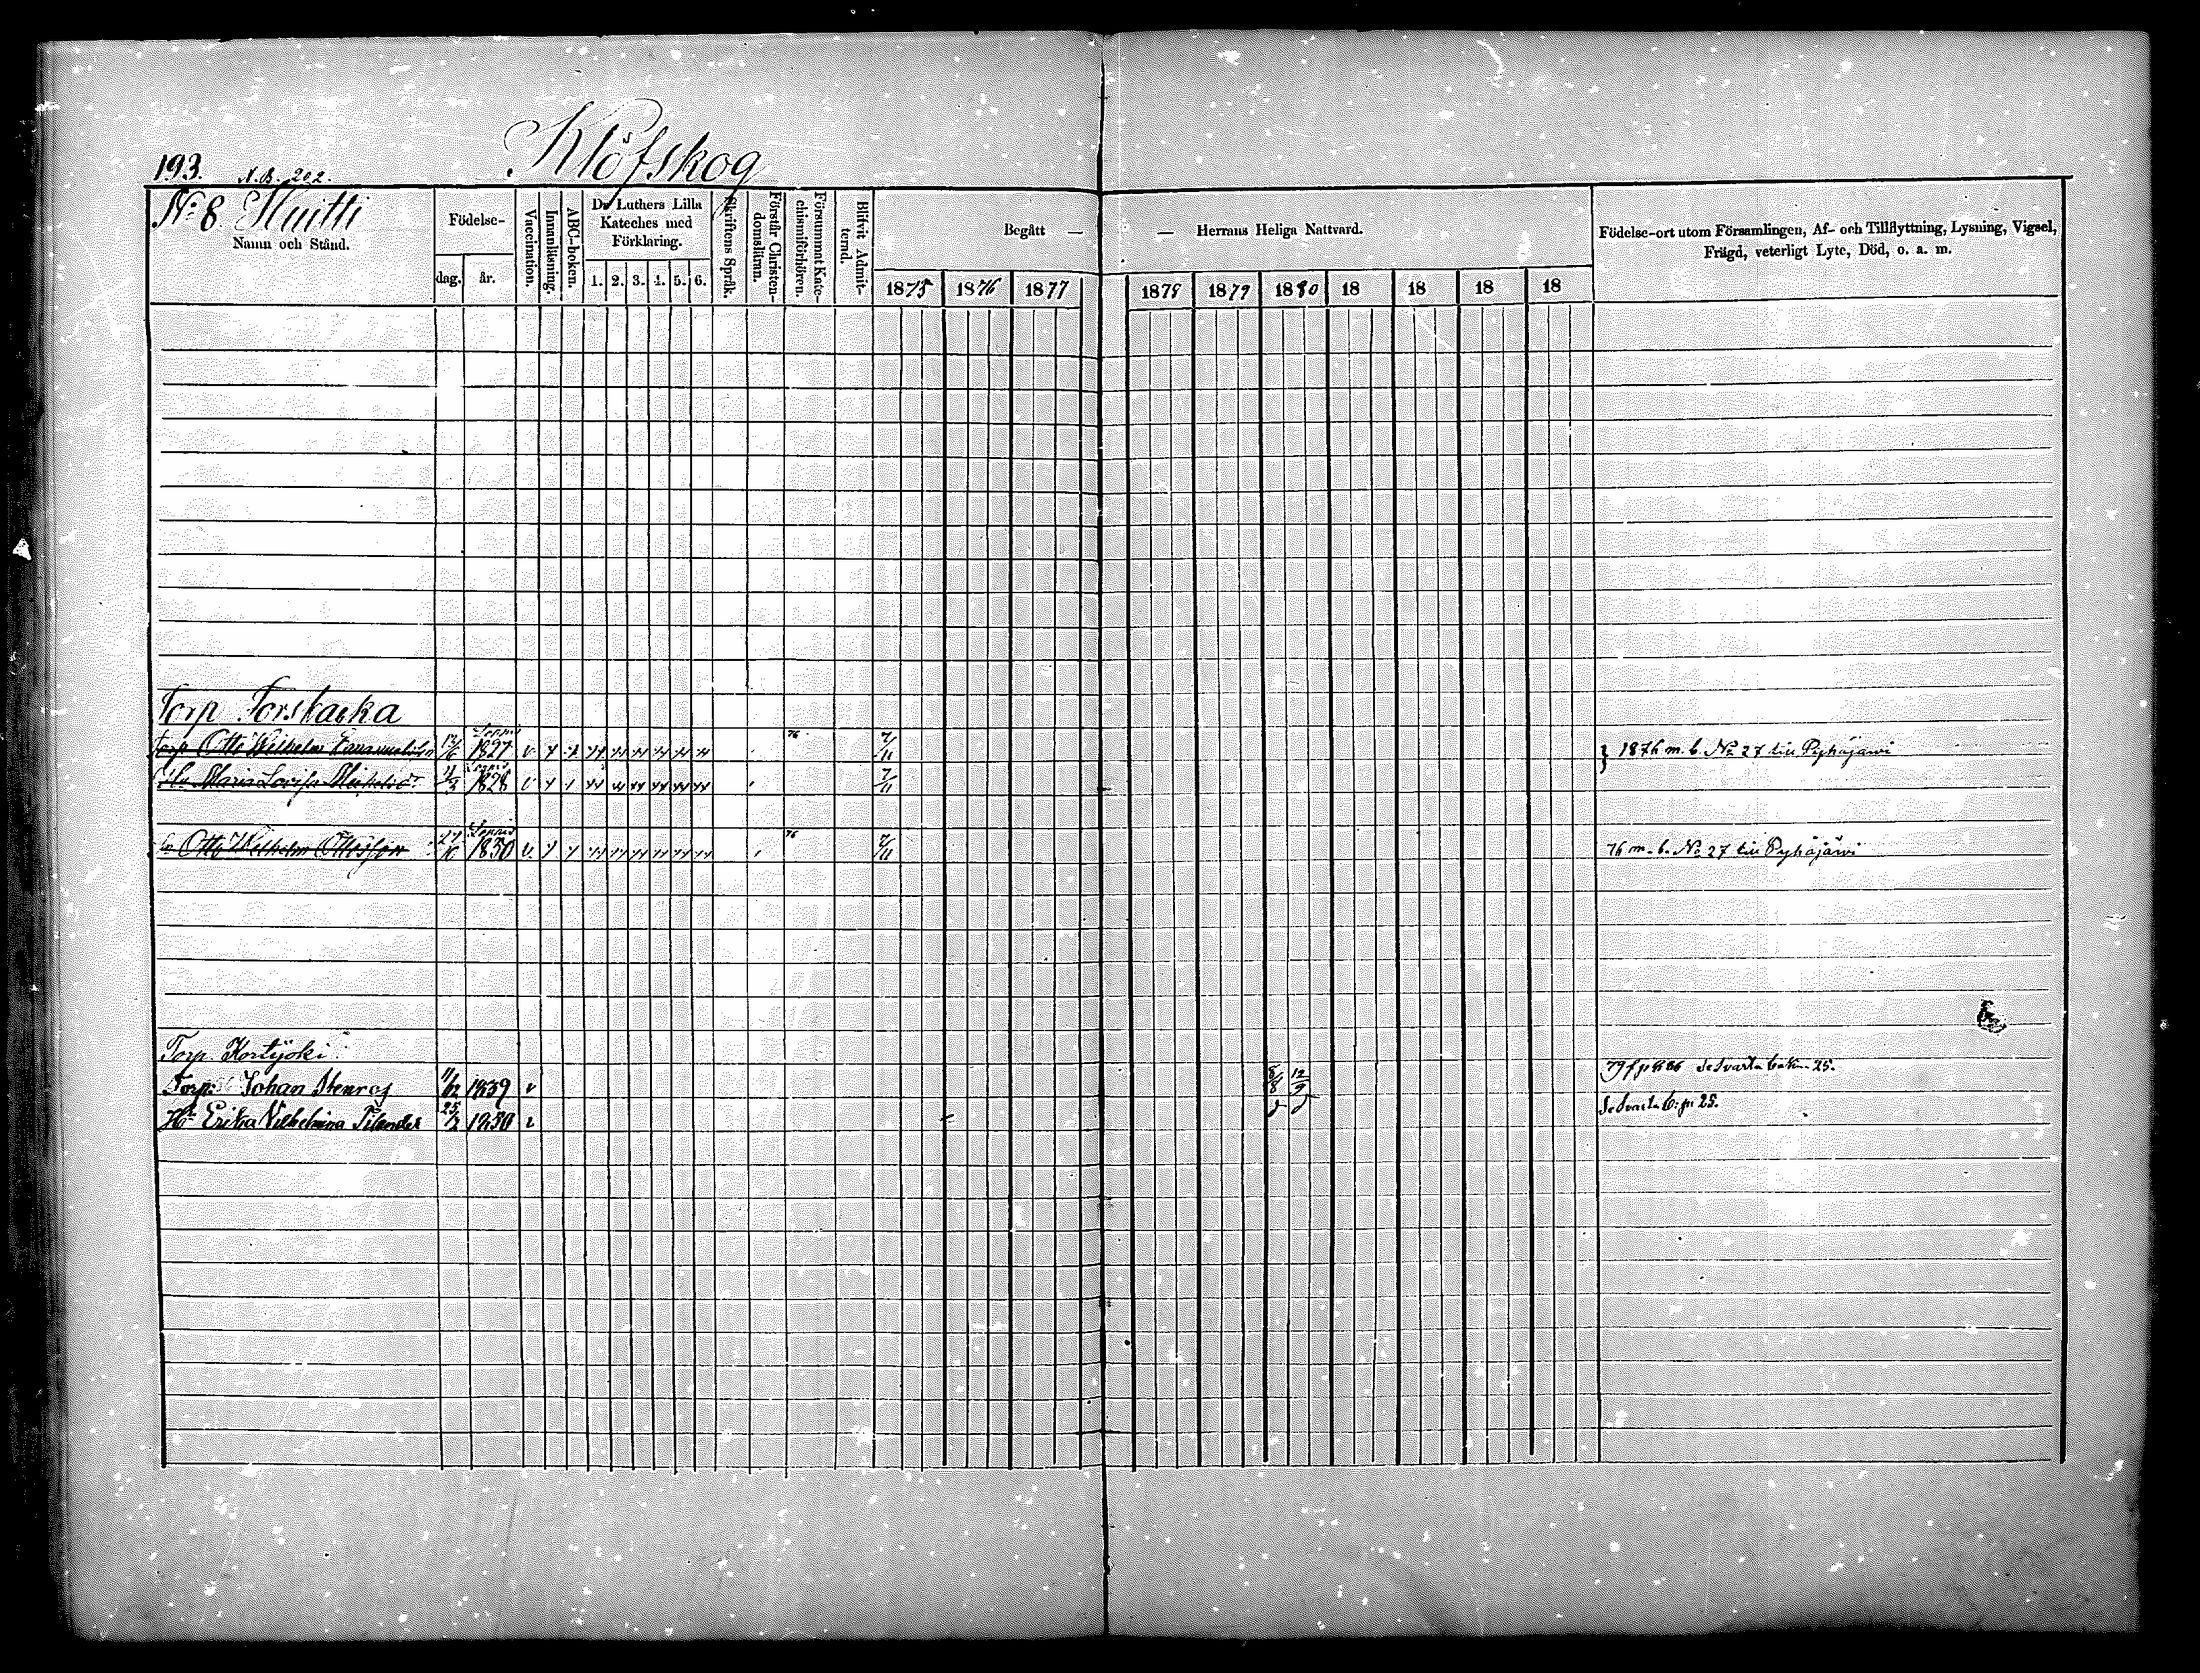 Klöfskog
193. N.B. 202.
No 8 Huitti
Namn och Stånd.
Födelse-
dag. år.
Vaccination.
Innanläsning.
ABC-boken.
Dr Luthers Lilla Kateches med Förklaring.
1. 2. 3. 4. 5. 6.
Skriftens Språk.
Förstår Christendomslänan.
Försummat Katechismiförhören.
Blifvit Admitterad.
Begått — — Herrans Heliga Nattvard.
1875 1876 1877 1878 1879 1880 18 18 18 18
Födelse-ort utom Församlingen, Af- och Tillflyttning, Lysning, Vigsel,
Frägd, veterligt Lyte, Död, o. a. m.
Torp Forsbacka
Torp Otto Wilhelm 1827 v 76 7/11 } 1876 m. b. No 27 till Pyhäjärvi
Maria Lovisa 1828 v 7/11
Otto Wilhelm Ottosson 1850 v. 76 7/11 76 m. b. No 27 till Pyhäjärvi
Torp. Kortjoki
Torp. Johan Stenros 11/12 1839 v 8/8 12/9 25.
Hu Erika Vilhelmina 25/2 1830 v 25.